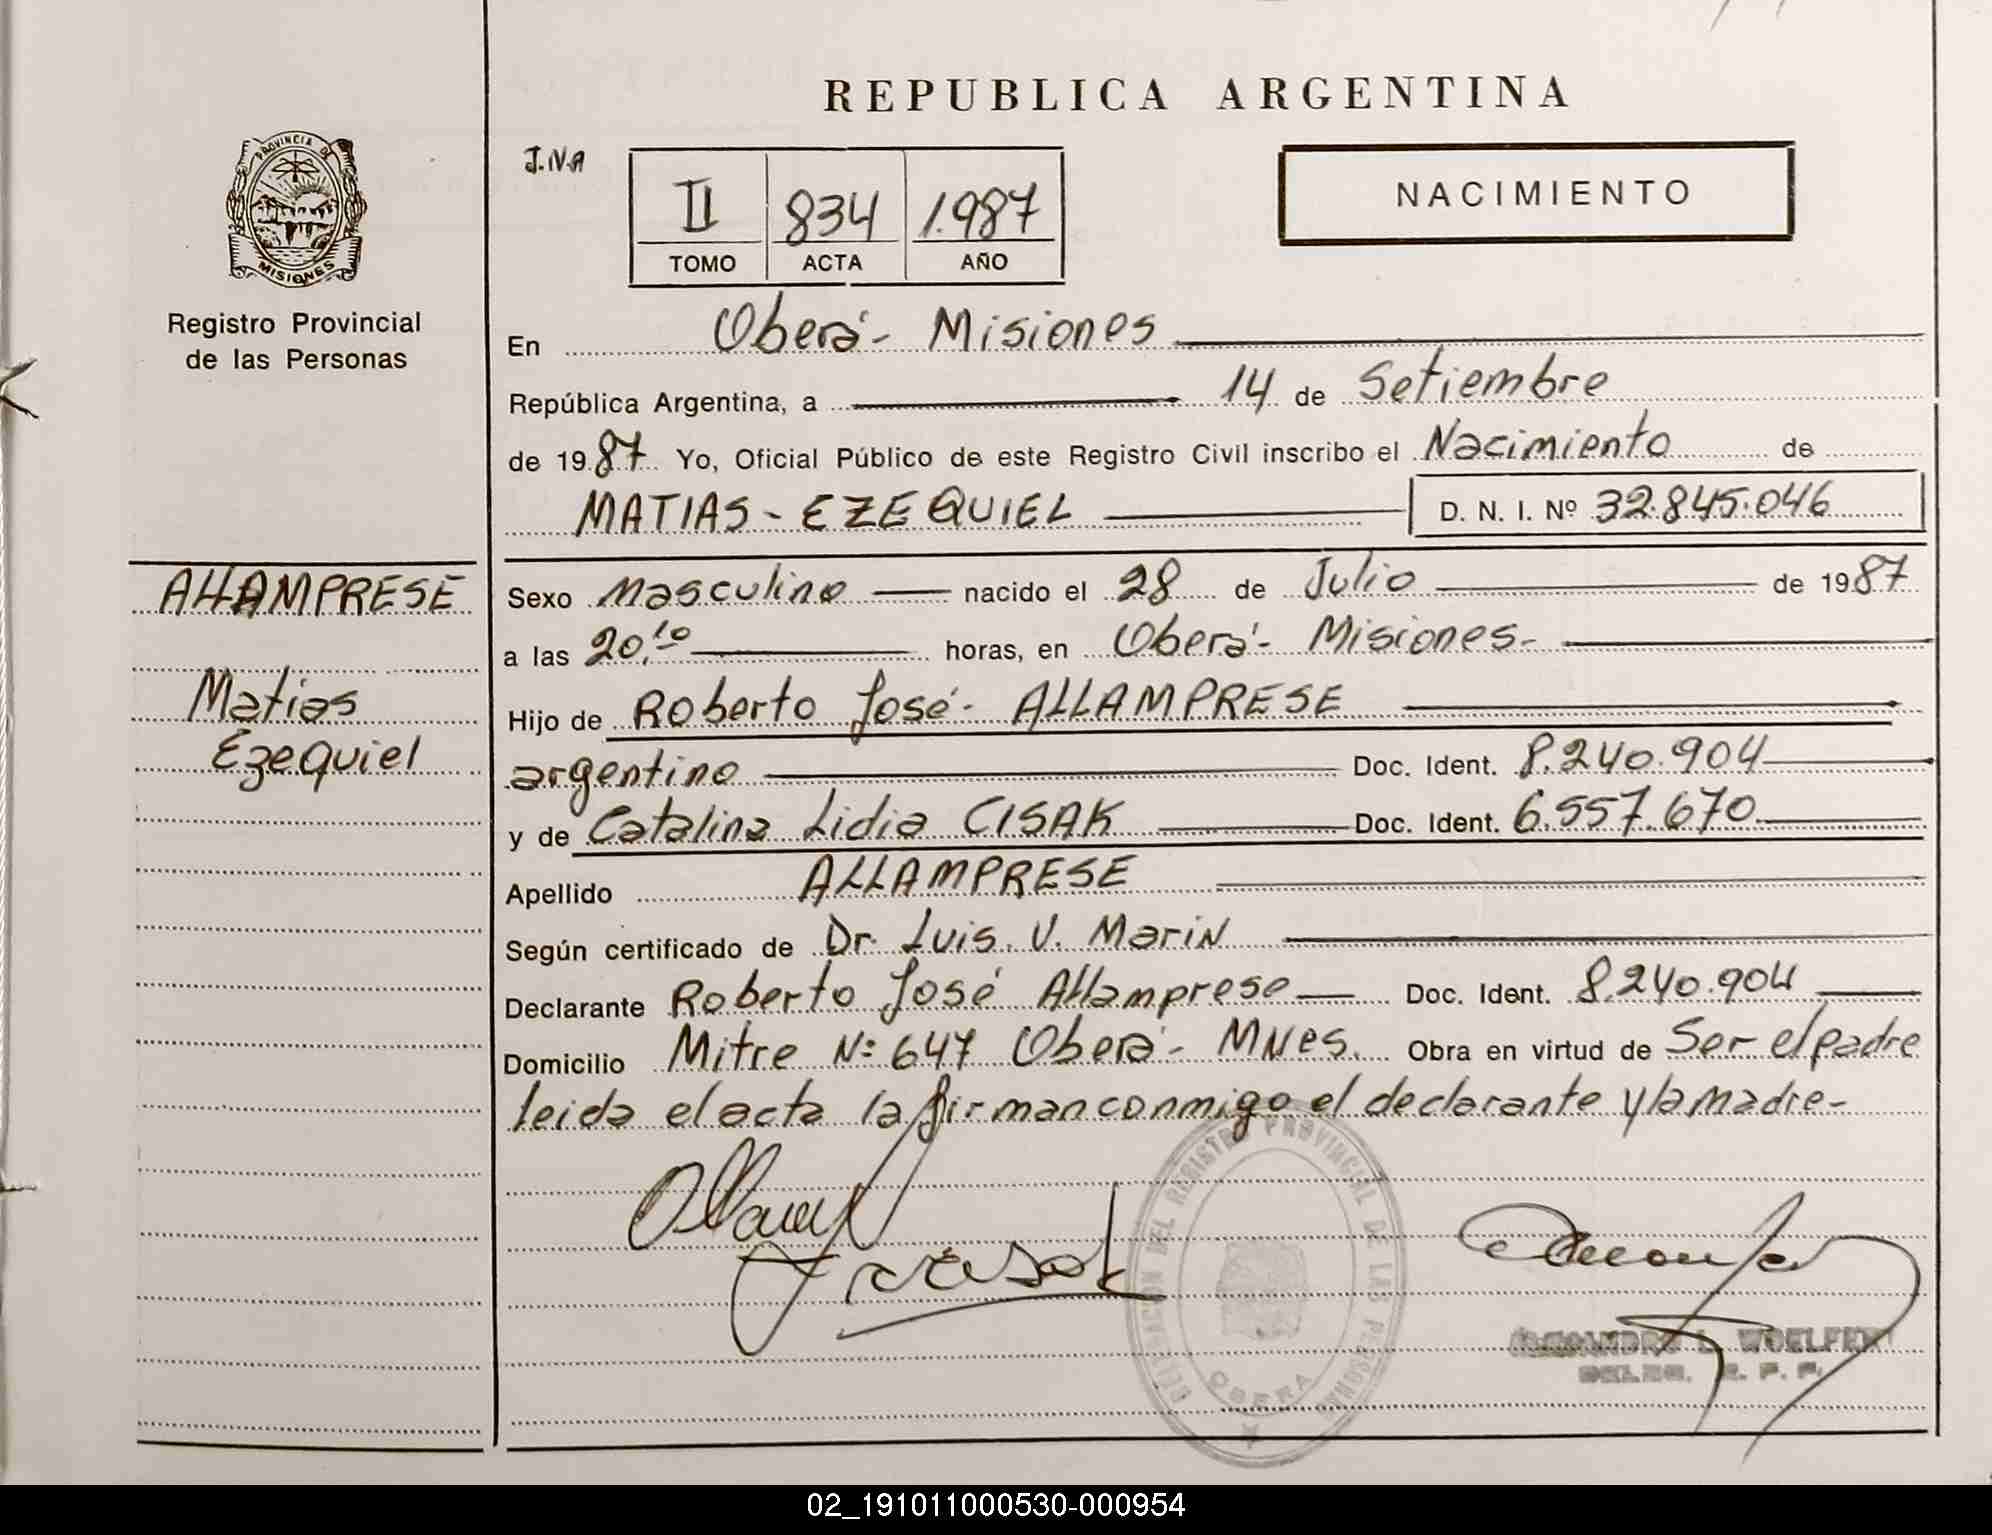 REPUBLICA ARGENTINA
PROVINCIA DE
MISIONES
Registro Provincial
de las Personas
J.N.A
II 834 1.987
TOMO ACTA AÑO
NACIMIENTO
En Oberá- Misiones
República Argentina, a 14 de Setiembre
de 1987 Yo, Oficial Público de este Registro Civil inscribo el Nacimiento de
MATIAS - EZEQUIEL D. N. I. Nº 32.845.046
ALLAMPRESE
Matias
Ezequiel
Sexo Masculino nacido el 28 de Julio de 1987
a las 20,10 horas, en Oberá- Misiones-
Hijo de Roberto José- ALLAMPRESE
argentino Doc. Ident. 8.240.904
y de Catalina Lidia CISAK Doc. Ident. 6.557.670
Apellido ALLAMPRESE
Según certificado de Dr. Luis. V. MariN
Declarante Roberto José Allamprese Doc. Ident. 8.240.904
Domicilio Mitre Nº: 647 Oberá- MNes. Obra en virtud de Ser el padre
leida el acta la firman conmigo el declarante y la madre-
DELEGACION DEL REGISTRO PROVINCIAL DE LAS PERSONAS
OBERA
L. WOELFERT
02_191011000530-000954